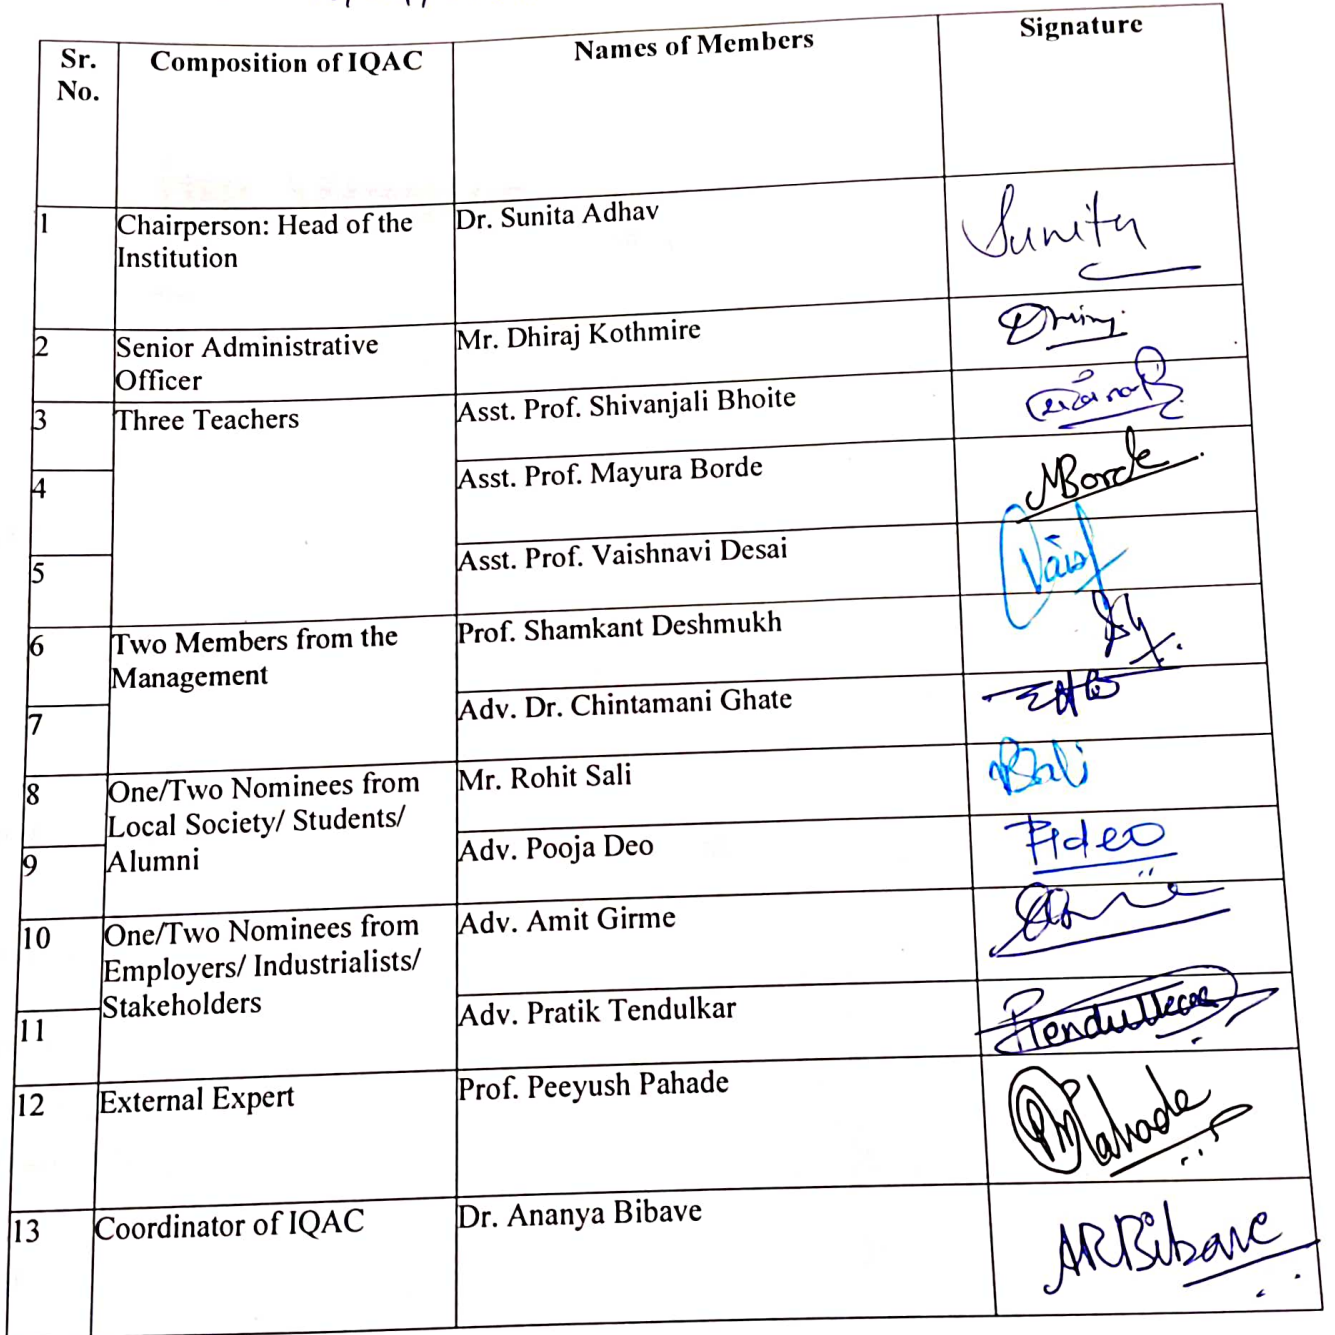 Sr. No. Composition of IQAC Names of Members Signature
1 Chairperson: Head of the Institution Dr. Sunita Adhav Sunita
2 Senior Administrative Officer Mr. Dhiraj Kothmire
3 Three Teachers Asst. Prof. Shivanjali Bhoite
4 Asst. Prof. Mayura Borde MBorde
5 Asst. Prof. Vaishnavi Desai
6 Two Members from the Management Prof. Shamkant Deshmukh
7 Adv. Dr. Chintamani Ghate
8 One/Two Nominees from Local Society/ Students/ Alumni Mr. Rohit Sali
9 Adv. Pooja Deo
10 One/Two Nominees from Employers/ Industrialists/ Stakeholders Adv. Amit Girme
11 Adv. Pratik Tendulkar PTendulkar
12 External Expert Prof. Peeyush Pahade
13 Coordinator of IQAC Dr. Ananya Bibave ARBibave